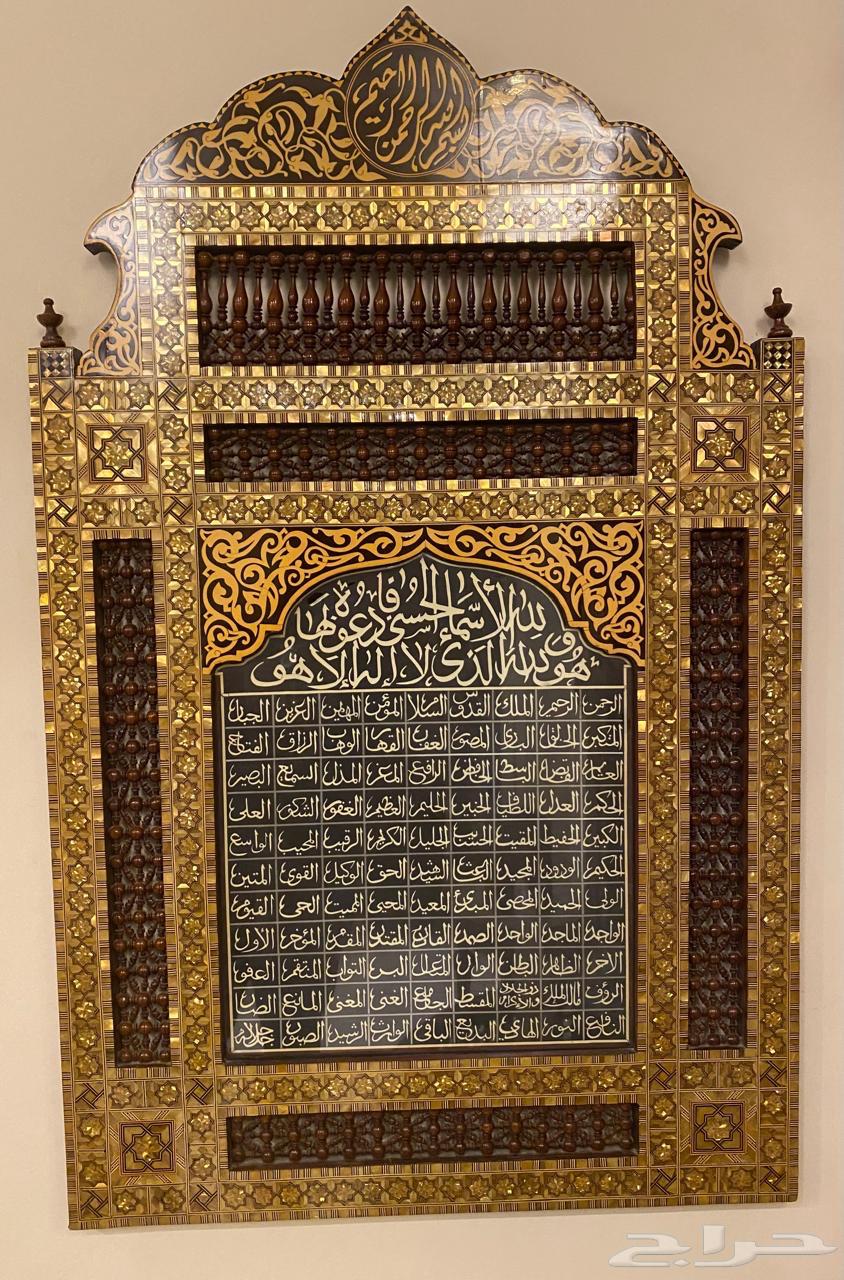 بسم الله الرحمن الرحيم
ولله الأسماء الحسنى فادعوه بها
هو الله الذي لا إله إلا هو
الرحمن الرحيم الملك القدوس السلام المؤمن المهيمن العزيز الجبار
المتكبر الخالق البارئ المصور الغفار القهار الوهاب الرزاق الفتاح
العليم القابض الباسط الخافض الرافع المعز المذل السميع البصير
الحكم العدل اللطيف الخبير الحليم العظيم الغفور الشكور العلي
الكبير الحفيظ المقيت الحسيب الجليل الكريم الرقيب المجيب الواسع
الحكيم الودود المجيد الباعث الشهيد الحق الوكيل القوي المتين
الولي الحميد المحصي المبدئ المعيد المحيي المميت الحي القيوم
الواجد الماجد الواحد الصمد القادر المقتدر المقدم المؤخر الأول
الآخر الظاهر الباطن الوالي المتعال البر التواب المنتقم العفو
الرؤف مالك الملك ذو الجلال والإكرام المقسط الجامع الغني المغني المانع الضار
النافع النور الهادي البديع الباقي الوارث الرشيد الصبور جل جلاله
حراج